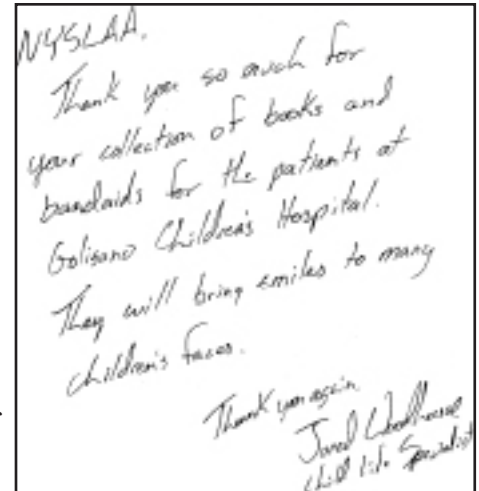 NYSLAA,
Thank you so much for
your collection of books and
bandaids for the patients at
Golisano Children's Hospital.
They will bring smiles to many
children's faces.
Thank you again
Jared
Child Life Specialist